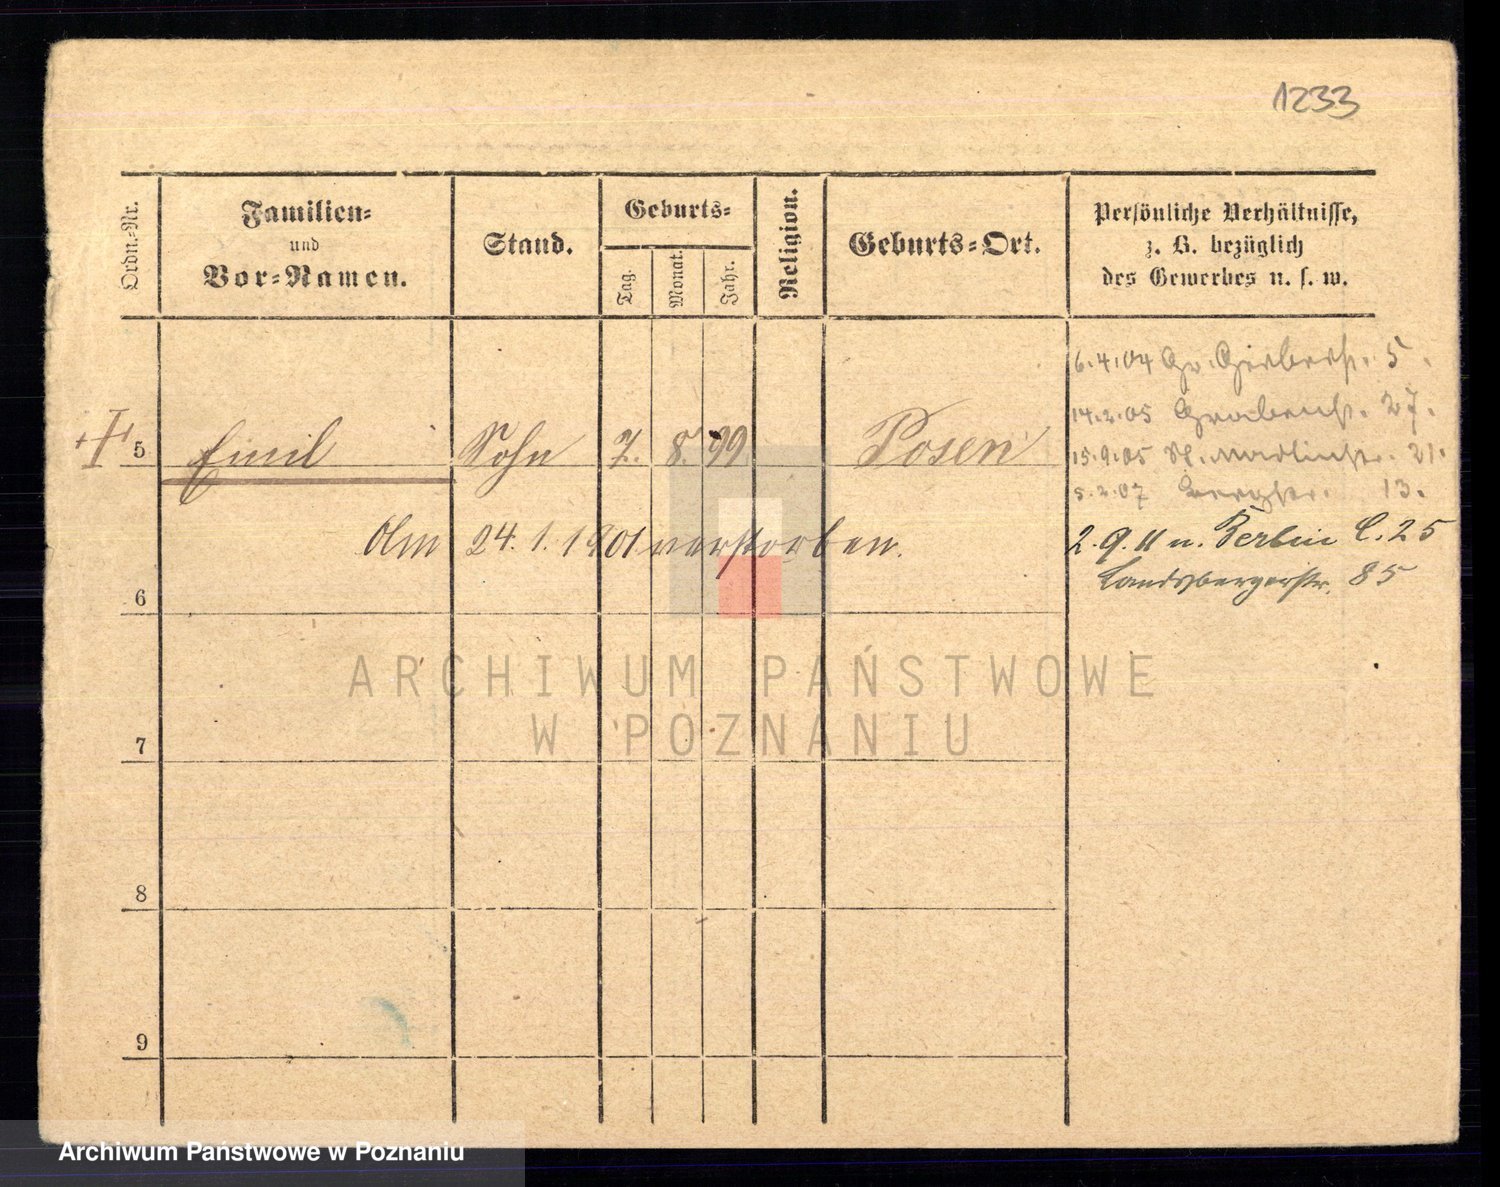 1233
Ordn.-Nr.
Familien-
und
Vor-Namen.
Stand.
Geburts-
Tag.
Monat.
Jahr.
Religion.
Geburts-Ort.
Persönliche Verhältnisse,
z. B. bezüglich
des Gewerbes u. s. w.
6.4.04 Gr. Gerberstr. 5.
14.2.05 Grabenstr. 27.
5 Emil Sohn 7. 8. 99 Posen
15.9.05 21.
5.2.07 Bergstr. 13.
Am 24.1.1901 verstorben.
2.9.11 n. Berlin C. 25
Landsbergerstr. 85
6
ARCHIWUM PAŃSTWOWE
W POZNANIU
7
8
9
Archiwum Państwowe w Poznaniu